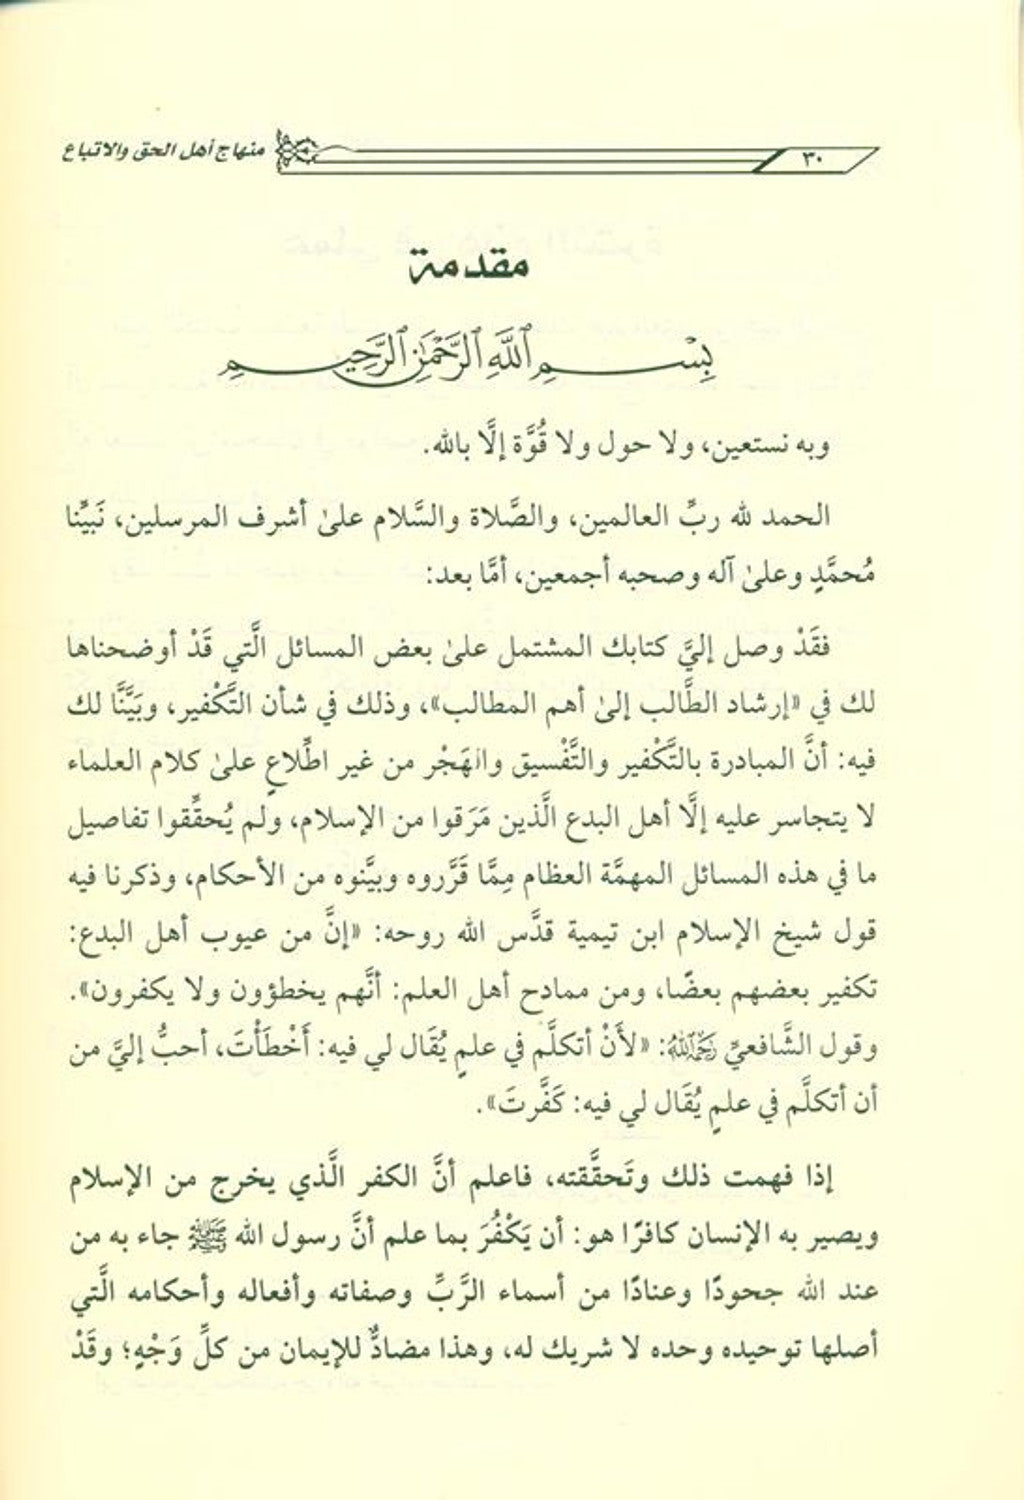 ٣٠
منهاج أهل الحق والاتباع
مقدمة
بِسْمِ اللَّهِ الرَّحْمَٰنِ الرَّحِيمِ
وبه نستعين، ولا حول ولا قُوَّة إلَّا بالله.
الحمد لله ربِّ العالمين، والصَّلاة والسَّلام علىٰ أشرف المرسلين، نَبيِّنا
مُحمَّدٍ وعلىٰ آله وصحبه أجمعين، أمَّا بعد:
فقَدْ وصل إليَّ كتابك المشتمل علىٰ بعض المسائل الَّتي قَدْ أوضحناها
لك في «إرشاد الطَّالب إلىٰ أهم المطالب»، وذلك في شأن التَّكْفير، وبَيَّنَّا لك
فيه: أنَّ المبادرة بالتَّكْفير والتَّفْسيق والهَجْر من غير اطِّلاعٍ علىٰ كلام العلماء
لا يتجاسر عليه إلَّا أهل البدع الَّذين مَرَقوا من الإسلام، ولم يُحقِّقوا تفاصيل
ما في هذه المسائل المهمَّة العظام مِمَّا قَرَّروه وبيَّنوه من الأحكام، وذكرنا فيه
قول شيخ الإسلام ابن تيمية قدَّس الله روحه: «إنَّ من عيوب أهل البدع:
تكفير بعضهم بعضًا، ومن ممادح أهل العلم: أنَّهم يخطؤون ولا يكفرون».
وقول الشَّافعيِّ رَحِمَهُ اللَّهُ: «لأَنْ أتكلَّم في علمٍ يُقَال لي فيه: أَخْطَأْتَ، أحبُّ إليَّ من
أن أتكلَّم في علمٍ يُقَال لي فيه: كَفَّرتَ».
إذا فهمت ذلك وتَحقَّقته، فاعلم أنَّ الكفر الَّذي يخرج من الإسلام
ويصير به الإنسان كافرًا هو: أن يَكْفُرَ بما علم أنَّ رسول الله ﷺ جاء به من
عند الله جحودًا وعنادًا من أسماء الرَّبِّ وصفاته وأفعاله وأحكامه الَّتي
أصلها توحيده وحده لا شريك له، وهذا مضادٌّ للإيمان من كلِّ وَجْهٍ؛ وقَدْ